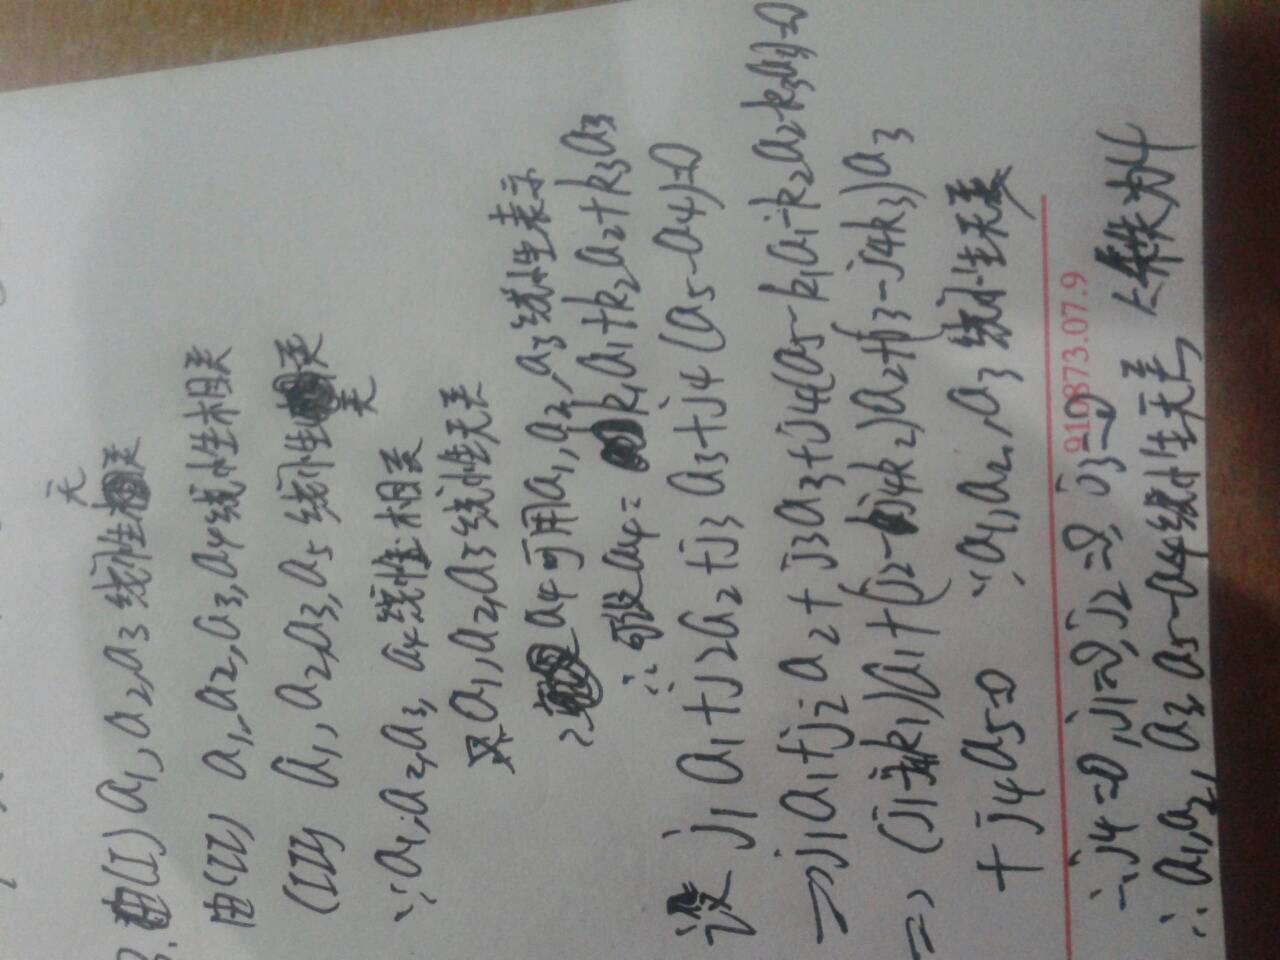 3. 由(I) a1, a2, a3 线性无关
由(II) a1, a2, a3, a4 线性相关
(III) a1, a2, a3, a5 线性无关
∵ a1, a2, a3, a4 线性相关
又 a1, a2, a3 线性无关
∴ a4 可用 a1, a2, a3 线性表示
∴ 设 a4 = k1a1+k2a2+k3a3
设 j1a1+j2a2+j3a3+j4(a5-a4)=0
⇒ j1a1+j2a2+j3a3+j4(a5-k1a1-k2a2-k3a3)=0
⇒ (j1-j4k1)a1+(j2-j4k2)a2+(j3-j4k3)a3
+j4a5=0 ∵ a1, a2, a3 线性无关
910873.07.9
∴ j4=0, j1=0, j2=0, j3=0
∴ a1, a2, a3, a5-a4 线性无关, 秩为4